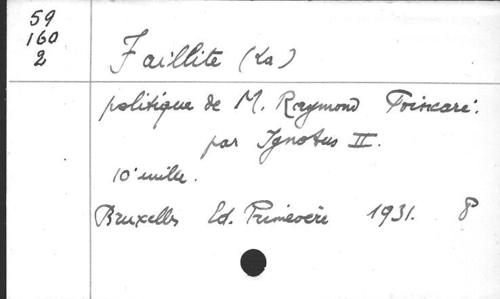 59
160
2
Faillite (La)
politique de M. Raymond Poincaré.
par Ignotus II.
10e mille.
Bruxelles Ed. Primevère 1931. 8